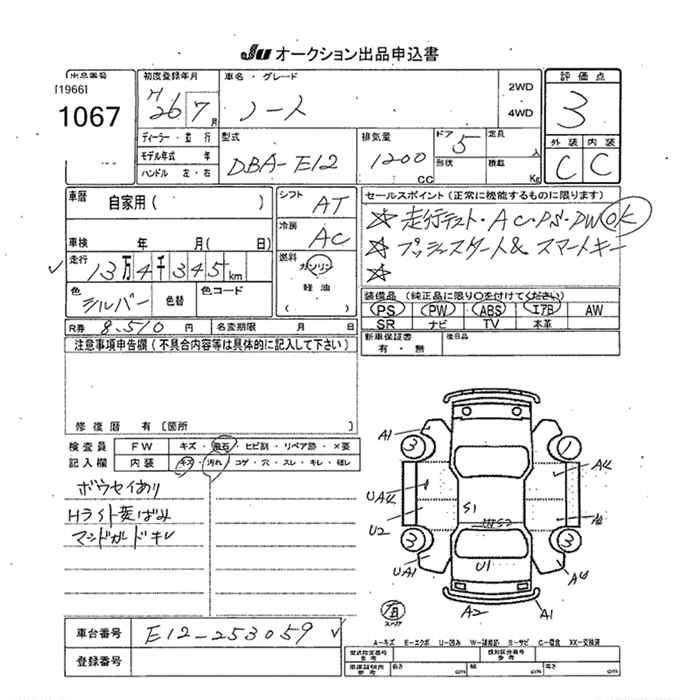 JU オークション出品申込書
出品番号
[1966]
1067
初度登録年月
H26 7月
車名・グレード
ノート
2WD
4WD
評価点
3
ディーラー・並行
モデル年式 年
ハンドル 左・右
型式
DBA-E12
排気量
1200 CC
ドア 5
形状
定員 人
積載 Kg
外装 内装
C C
車歴
自家用( )
車検 年 月( 日)
走行
13万4千345km
色
シルバー
色替
色コード
R券 8,510 円
名変期限 月 日
シフト AT
冷房 AC
燃料
ガソリン
軽油
( )
セールスポイント(正常に機能するものに限ります)
☆ 走行テスト・AC・PS・PW OK
☆ プッシュスタート& スマートキー
☆
装備品(純正品に限り○を付けてください)
PS PW ABS エアB AW
SR ナビ TV 本革
新車保証書
有・無
後日品
注意事項申告欄(不具合内容等は具体的に記入して下さい)
修復歴 有〔箇所 〕
検査員
記入欄
FW キズ・飛石・ヒビ割・リペア跡・×要
内装 キズ・汚れ・コゲ・穴・スレ・キレ・破レ
ボウセイあり
Hライト黄ばみ
マッドガードキレ
A1
3
1
UA
A
U2
S1
S2
A
3
3
UA1
U1
A
A2
A1
スペア
車台番号 E12-253059
登録番号
A-キズ E-エクボ U-凹み W-補修跡 S-サビ C-腐食 XX-交換済
型式指定番号
参考
類別区分番号
参考
長さ cm
幅 cm
高さ cm